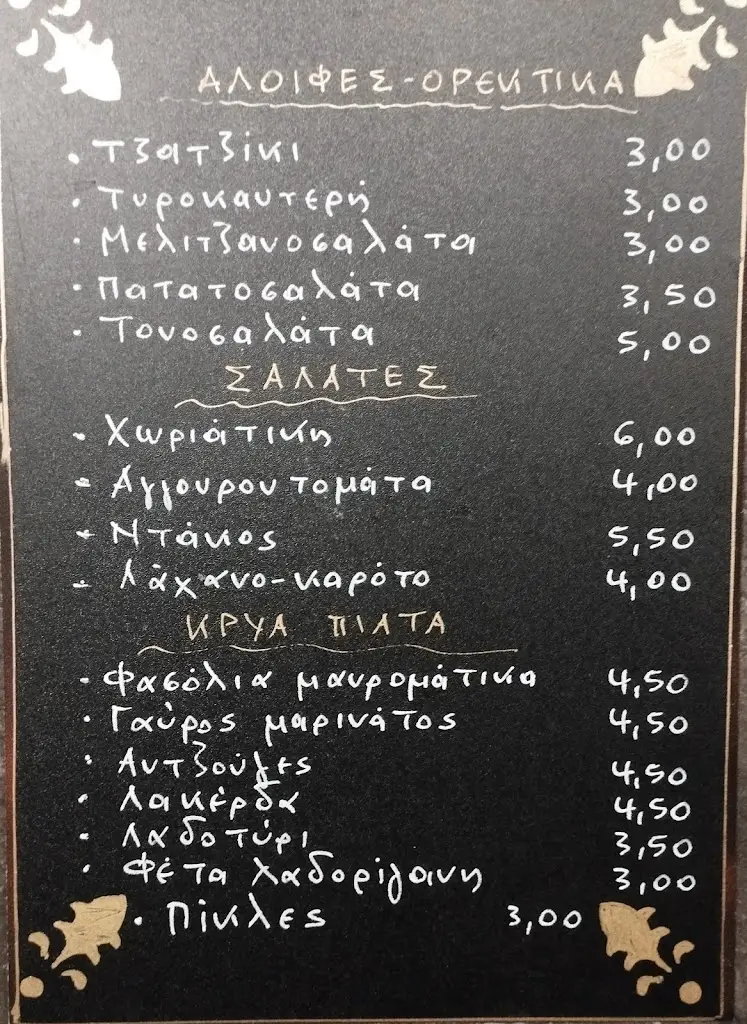 ΑΛΟΙΦΕΣ-ΟΡΕΚΤΙΚΑ
· Τζατζίκι 3,00
· Τυροκαυτερή 3,00
· Μελιτζανοσαλάτα 3,00
· Πατατοσαλάτα 3,50
· Τονοσαλάτα 5,00
ΣΑΛΑΤΕΣ
- Χωριάτικη 6,00
- Αγγουροντομάτα 4,00
- Ντάκος 5,50
- Λάχανο-καρότο 4,00
ΚΡΥΑ ΠΙΑΤΑ
· Φασόλια μαυρομάτικα 4,50
· Γαύρος μαρινάτος 4,50
· Αντζούγες 4,50
· Λακέρδα 4,50
- Λαδοτύρι 3,50
· Φέτα λαδορίγανη 3,00
· Πίκλες 3,00